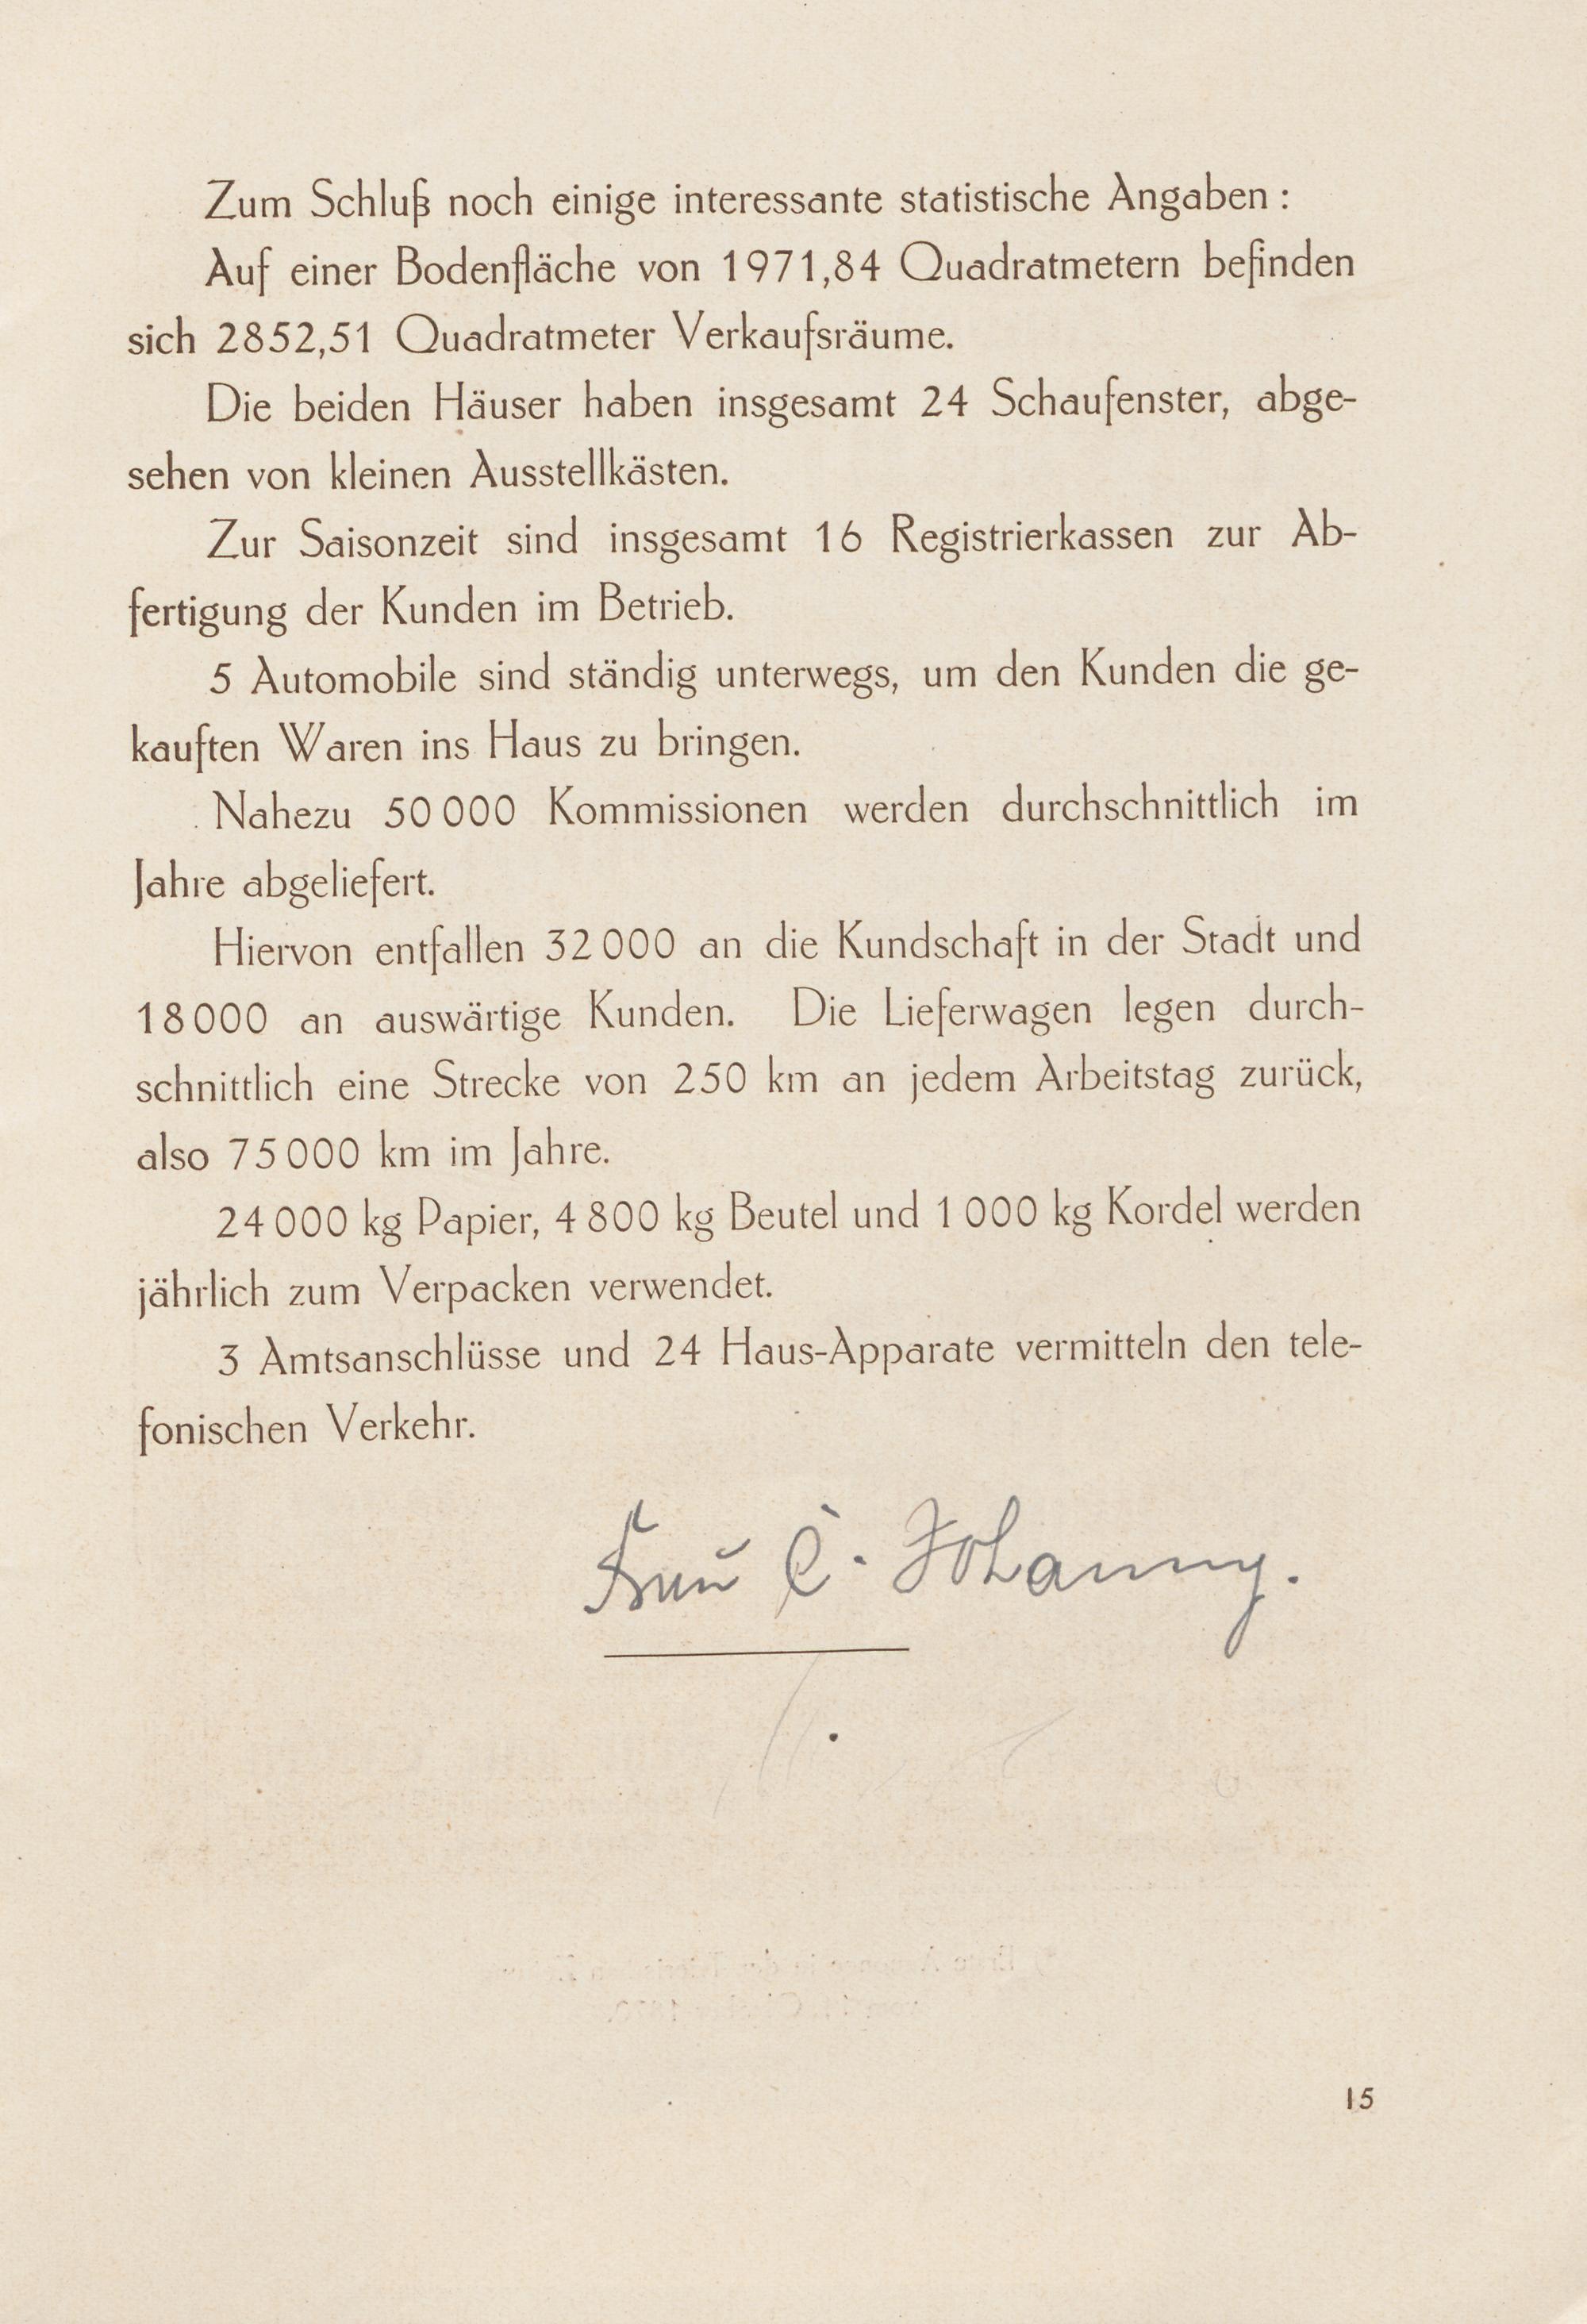 Zum Schluß noch einige interessante statistische Angaben :
Auf einer Bodenfläche von 1971,84 Quadratmetern befinden
sich 2852,51 Quadratmeter Verkaufsräume.
Die beiden Häuser haben insgesamt 24 Schaufenster, abge-
sehen von kleinen Ausstellkästen.
Zur Saisonzeit sind insgesamt 16 Registrierkassen zur Ab-
fertigung der Kunden im Betrieb.
5 Automobile sind ständig unterwegs, um den Kunden die ge-
kauften Waren ins Haus zu bringen.
Nahezu 50 000 Kommissionen werden durchschnittlich im
Jahre abgeliefert.
Hiervon entfallen 32 000 an die Kundschaft in der Stadt und
18 000 an auswärtige Kunden. Die Lieferwagen legen durch-
schnittlich eine Strecke von 250 km an jedem Arbeitstag zurück,
also 75 000 km im Jahre.
24 000 kg Papier, 4 800 kg Beutel und 1 000 kg Kordel werden
jährlich zum Verpacken verwendet.
3 Amtsanschlüsse und 24 Haus-Apparate vermitteln den tele-
fonischen Verkehr.
Frau C. Johanny.
15